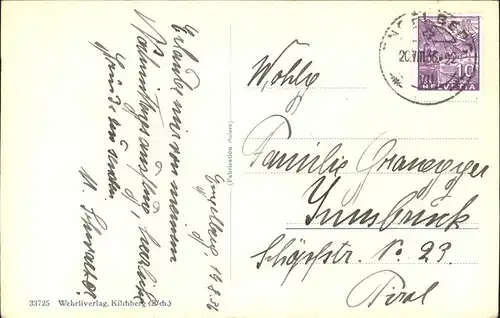 Engelberg, 19.8.36
Erlaube mir von meinem
Nachmittagsausflug, herzliche
Grüsse zu senden.
ENGELBERG
20.VIII.36.-22
10
HELVETIA
Wohlg.
Familie
Innsbruck
Schöpfstr. No 23.
Tirol
(Fabrication Suisse)
33725 Wehrliverlag, Kilchberg (Zch.)